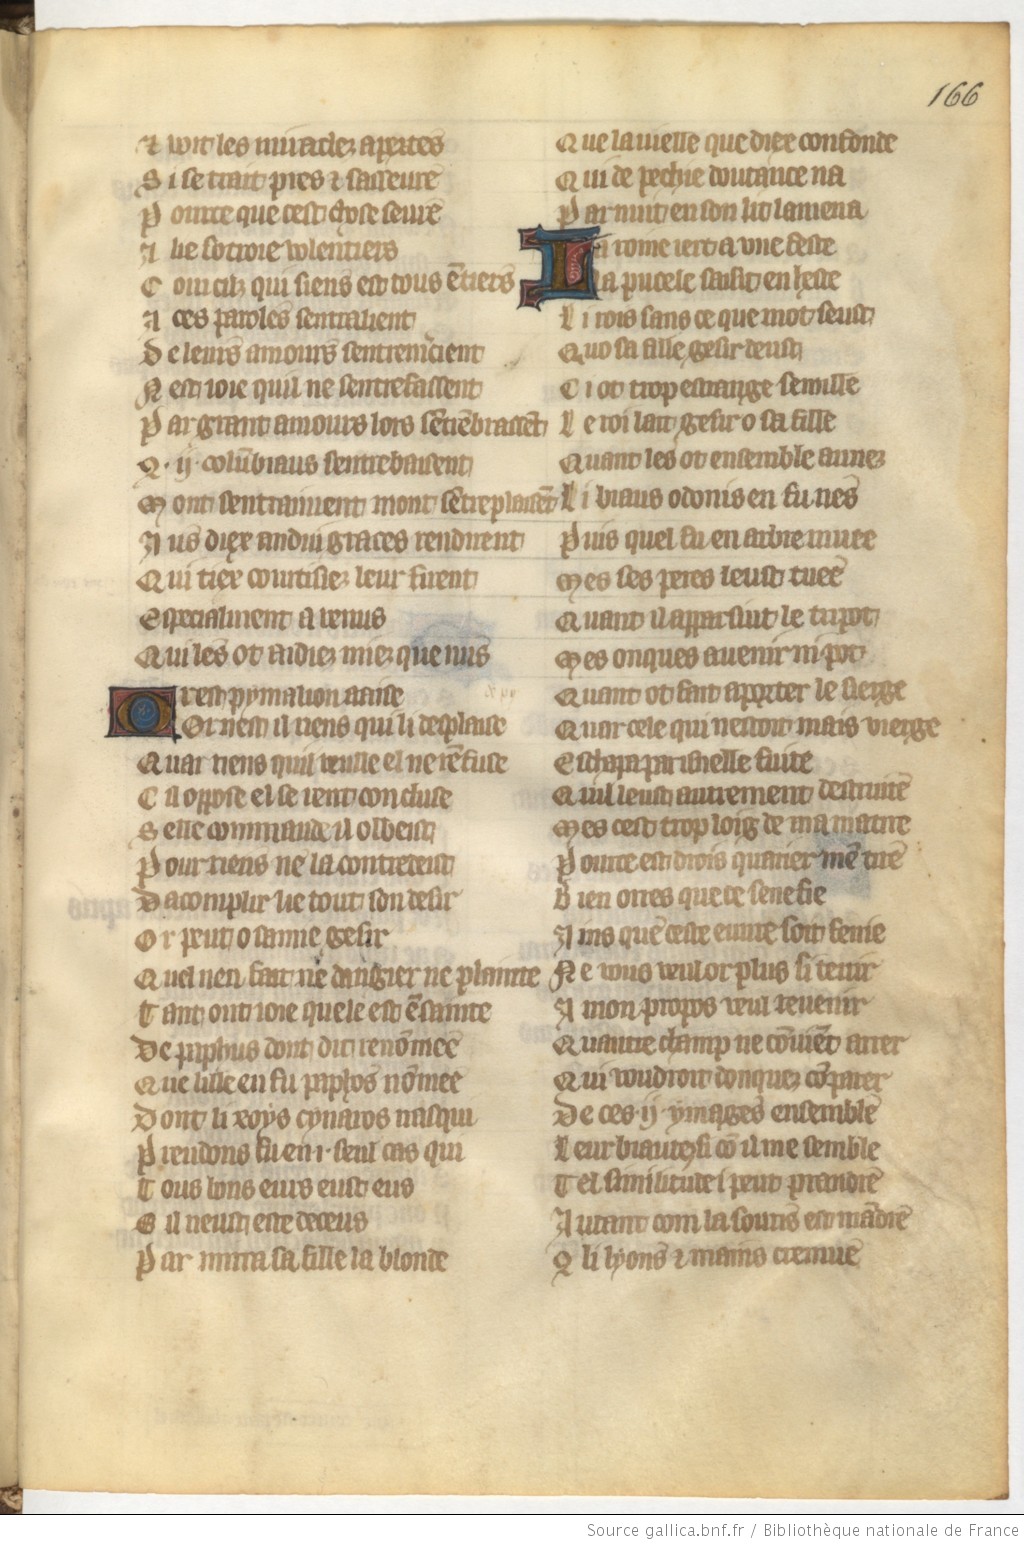 166
A voit les miracles apertes
S i se trait pres & sasseure
P ource que cest chose seure
A lie sotroie volentiers
C om cilz qui siens est tous entiers
A ces paroles sentralient
D e leurs amours sentremcient
N est ioie quil ne sentrefassent
P ar grant amours lors sentrebrassent
Q .ij. columbiaus sentrebaisent
M ont sentraiment mont sentreplaisent
A us diex andui graces rendirent
Q ui tiex courtisiez leur firent
E specialment a venus
Q ui les ot aidiez miex que nus
O r est pymalion aaise
Or nest il riens qui li desplaise
Q uar riens quil veulle el ne refuse
C il oppose el se rent concluse
S elle commande il obeist
P our riens ne la contredit
D acomplir lie tout son desir
O r peut o samie gesir
Q uel nen fait ne dangier ne plainte
T ant ont ioie quele est ensainte
D e paphus dont dit renommee
Q ue lille en fu paphos nommee
D ont li roys cynaros nasqui
P reudons fu en .i. seul cas qui
T ous bons eurs eust eus
C il neust este deceus
P ar mirra sa fille la blonde
Q ue la vielle que diex confonde
Q ui de pechie doutance na
P ar nuit en son lit lamena
L a roine iert a une feste
L a pucele saisit en heste
L i rois sans ce que mot seust
Q uo sa fille gesir deust
C i ot trop estrange semille
L e roi lait gesir o sa fille
Q uant les ot ensemble aunez
L i biaus odonis en fu nes
P uis quel fu en arbre muee
M es ses peres leust tuee
Q uant il apparsuit le tripot
M es onques avenir ni pot
Q uant ot fait aporter le sierge
Q uar cele qui nestoit mais vierge
E schapa par isnelle fuite
Q uil leust autrement destruite
M es cest trop loig de ma matire
P ource est drois quarier men tire
B ien orres que ce senefie
A ins que ceste euvre soit fenie
N e vous veul or plus si tenir
A mon propos veul revenir
Q uautre champ ne convient arer
Q ui voudroit donques comparer
D e ces .ij. ymages ensemble
L eur biautez si com il me semble
T el similitude i peut prendre
A utant com la souris est maindre
Q li lyons & mains cremue